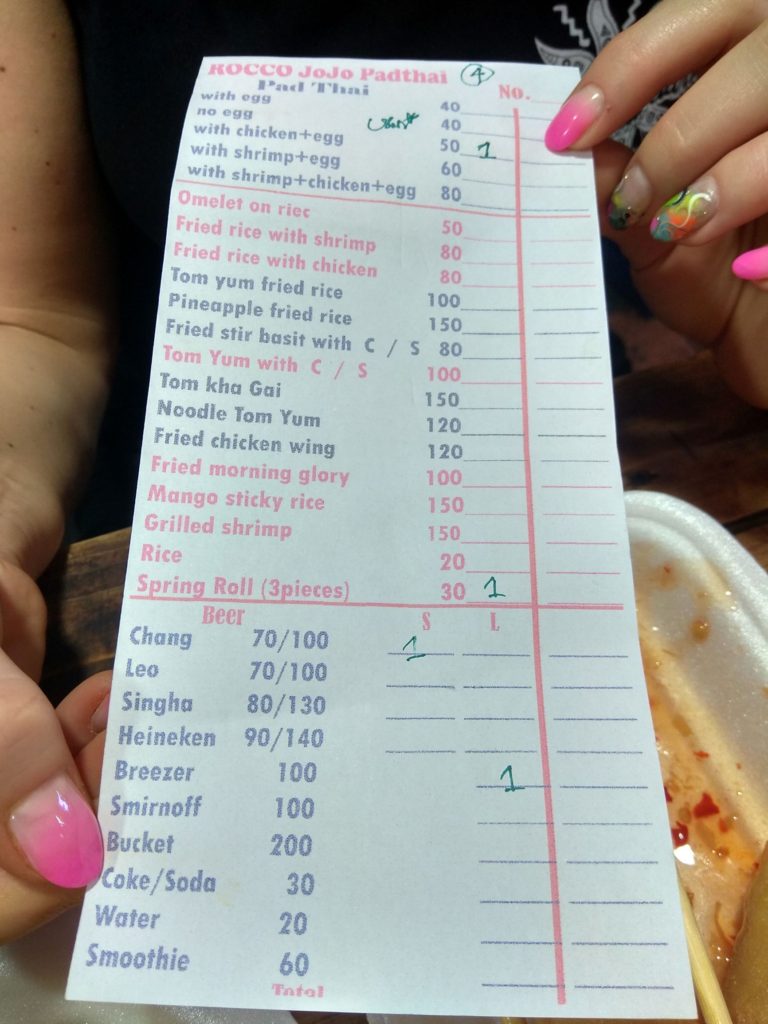 ROCCO JoJo Padthai 4 No.
Pad Thai
with egg 40
no egg 40
with chicken+egg 50 1
with shrimp+egg 60
with shrimp+chicken+egg 80
Omelet on riec 50
Fried rice with shrimp 80
Fried rice with chicken 80
Tom yum fried rice 100
Pineapple fried rice 150
Fried stir basit with C / S 80
Tom Yum with C / S 100
Tom kha Gai 150
Noodle Tom Yum 120
Fried chicken wing 120
Fried morning glory 100
Mango sticky rice 150
Grilled shrimp 150
Rice 20
Spring Roll (3pieces) 30 1
Beer S L
Chang 70/100 1
Leo 70/100
Singha 80/130
Heineken 90/140
Breezer 100 1
Smirnoff 100
Bucket 200
Coke/Soda 30
Water 20
Smoothie 60
Total